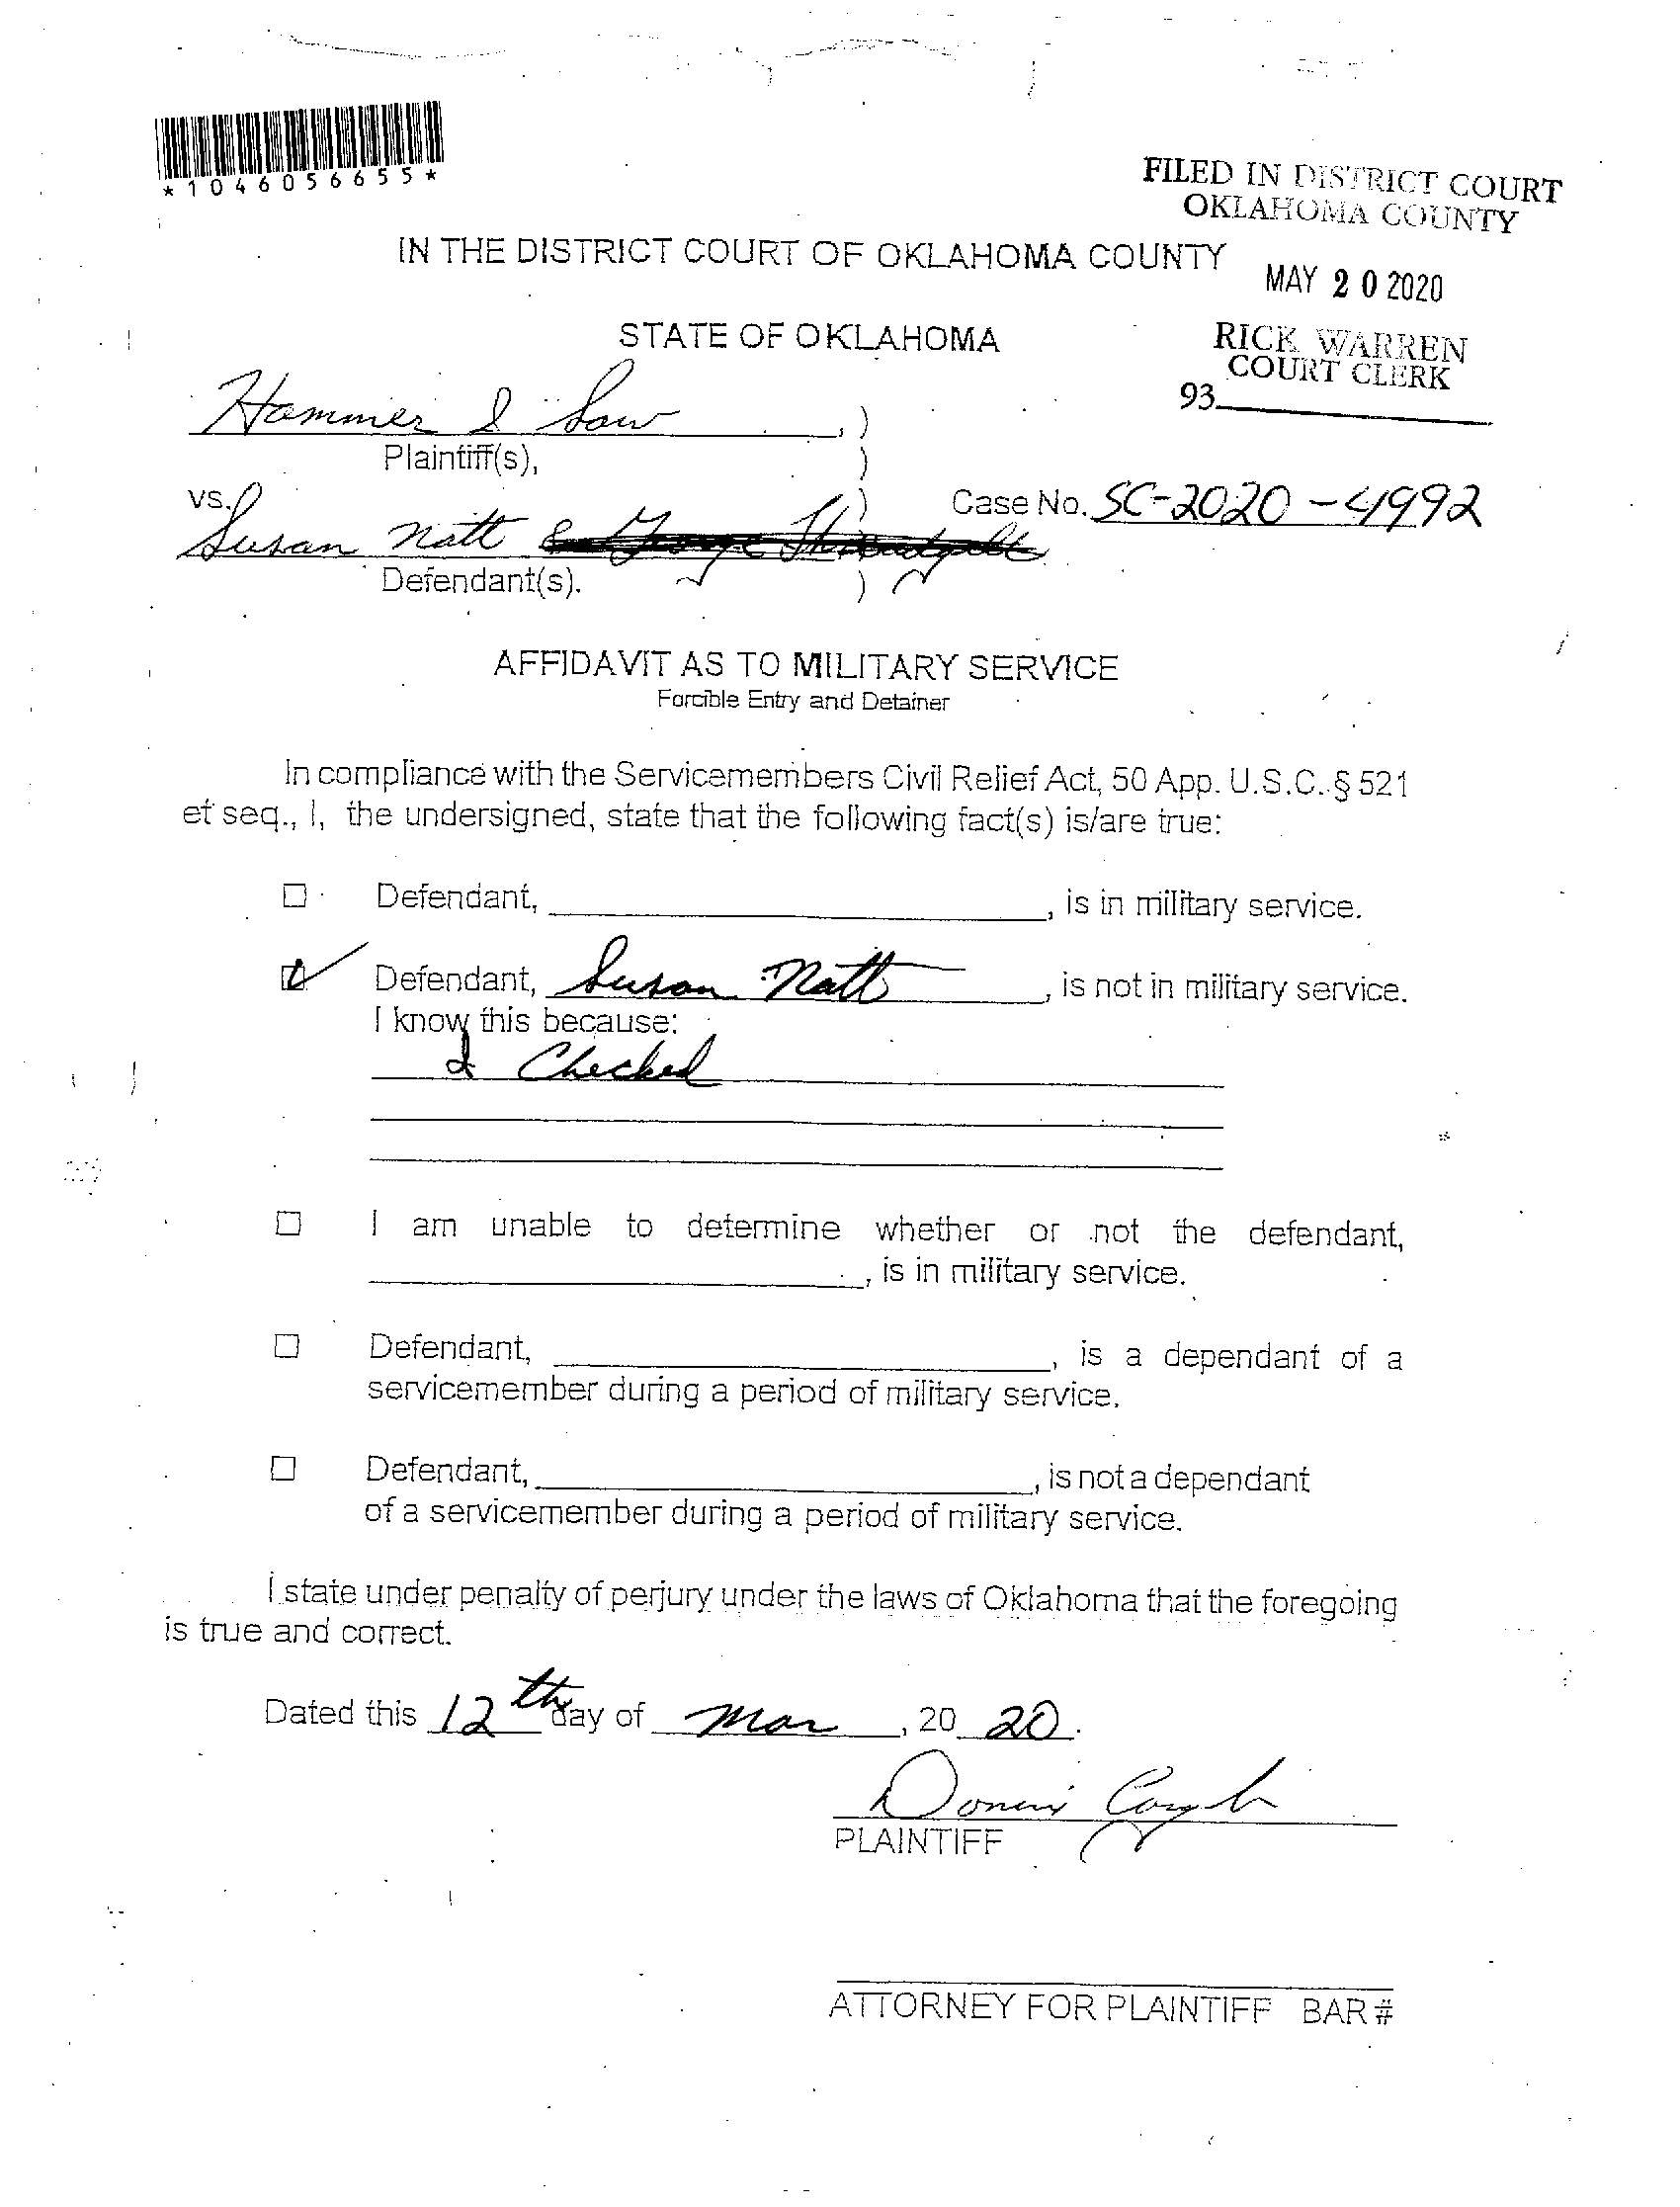 *1046056655*
FILED IN DISTRICT COURT
OKLAHOMA COUNTY
IN THE DISTRICT COURT OF OKLAHOMA COUNTY
MAY 20 2020
STATE OF OKLAHOMA
RICK WARREN
COURT CLERK
93
Hammer & Saw , )
Plaintiff(s), )
vs. )
Case No. SC-2020-4992
Susan Natt & George
Defendant(s). )
AFFIDAVIT AS TO MILITARY SERVICE
Forcible Entry and Detainer
In compliance with the Servicemembers Civil Relief Act, 50 App. U.S.C. § 521
et seq., I, the undersigned, state that the following fact(s) is/are true:
☐ Defendant, , is in military service.
☑ Defendant, Susan Natt , is not in military service.
I know this because:
I Checked
☐ I am unable to determine whether or not the defendant,
, is in military service.
☐ Defendant, , is a dependant of a
servicemember during a period of military service.
☐ Defendant, , is not a dependant
of a servicemember during a period of military service.
I state under penalty of perjury under the laws of Oklahoma that the foregoing
is true and correct.
Dated this 12th day of Mar , 20 20.
PLAINTIFF
ATTORNEY FOR PLAINTIFF BAR #